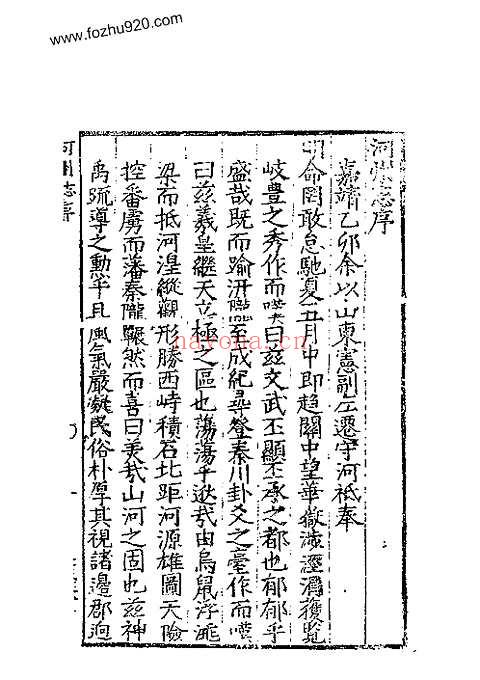 www.fozhu920.com
河州志序
嘉靖乙卯余以山東憲副左遷守河祗奉
明命罔敢怠馳夏五月中即趨關中望華嶽涉涇渭復覽
岐豐之秀作而嘆曰兹文武丕顯丕承之都也郁郁乎
盛哉既而踰汧隴至成紀尋登秦川卦爻之臺作而嘆
曰兹羲皇繼天立極之區也蕩蕩乎逖哉由鳥鼠浮洮
梁而抵河湟縱觀形勝西峙積石北距河源雄圖天險
控番虜而藩秦隴囅然而喜曰美哉山河之固也兹神
禹疏導之勲乎且風氣嚴凝民俗朴厚其視諸邊郡迥
河州志序
nayona.cn